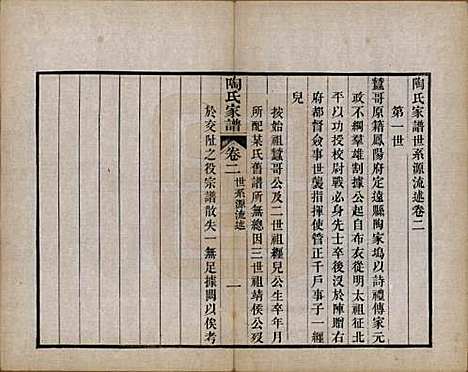 陶氏家譜世系源流述卷二
第一世
蠶哥原籍鳳陽府定遠縣陶家塢以詩禮傳家元
政不綱羣雄割據公起自布衣從明太祖征北
平以功授校尉戰必身先士卒後沒於陣贈右
府都督僉事世襲指揮使管正千戶事子一纒
兒
按始祖蠶哥公及二世祖纒兒公生卒年月
所配某氏舊譜所無總因三世祖靖侯公歿
陶氏家譜 卷二 世系源流述 一
於交阯之役宗譜散失一無足據闕以俟考